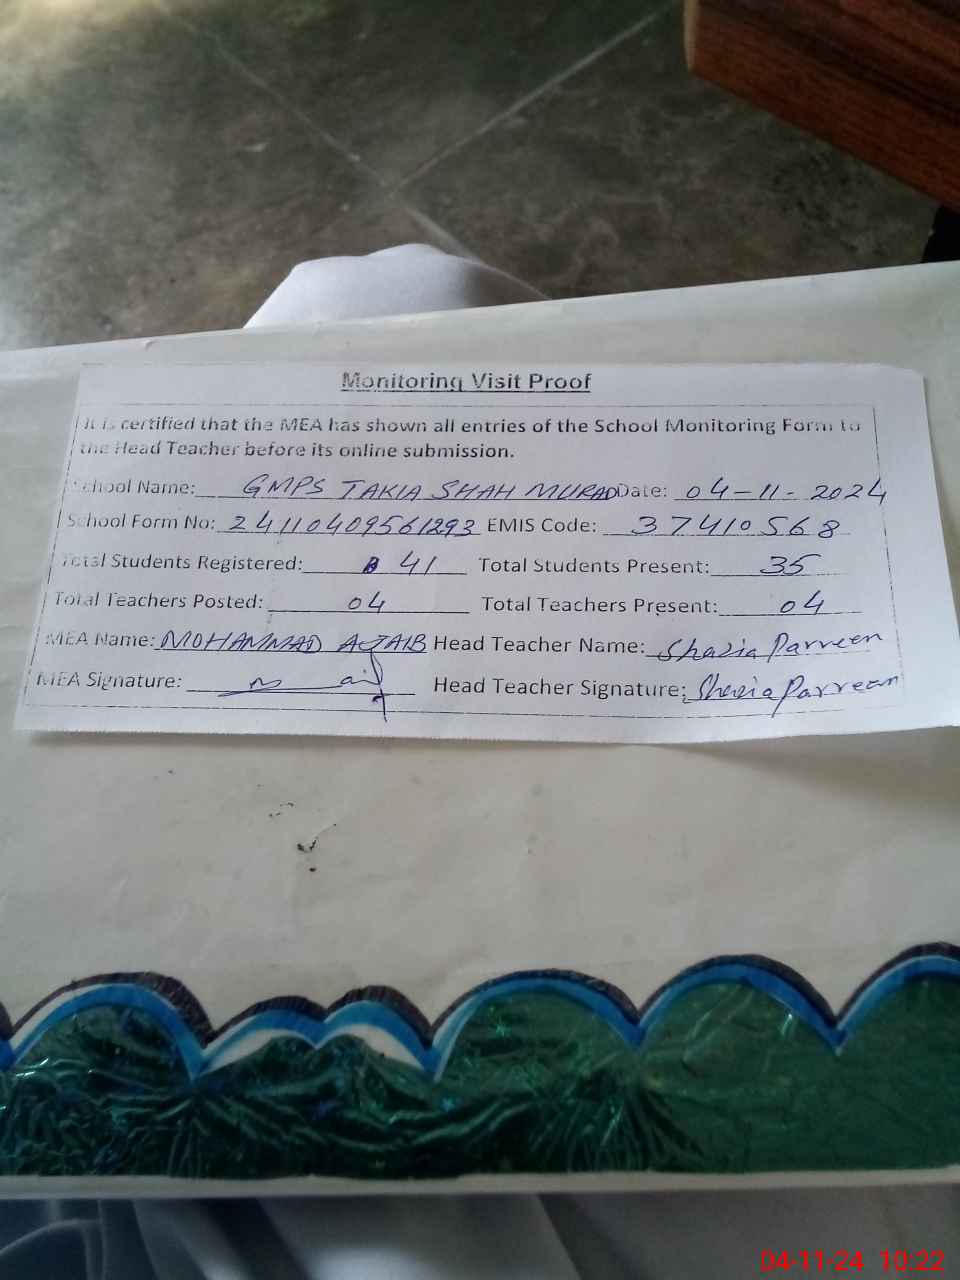 Monitoring Visit Proof
It is certified that the MEA has shown all entries of the School Monitoring Form to
the Head Teacher before its online submission.
School Name: GMPS TAKIA SHAH MURAD Date: 04-11-2024
School Form No: 24110409561293 EMIS Code: 37410568
Total Students Registered: 41 Total Students Present: 35
Total Teachers Posted: 04 Total Teachers Present: 04
MEA Name: MOHAMMAD AJAIB Head Teacher Name: Shazia Parveen
MEA Signature: Head Teacher Signature: Shazia Parveen
04-11-24 10:22